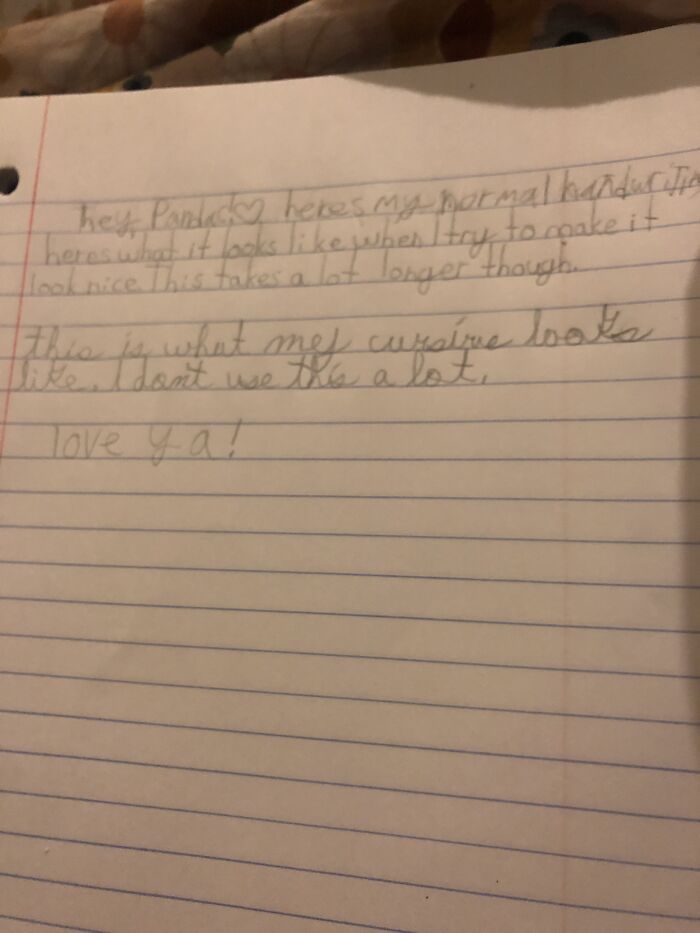 hey, Pandas♡ heres my normal handwriting
heres what it looks like when I try to make it
look nice. This takes a lot longer though.
this is what my cursive looks
like. I don't use this a lot.
love ya!